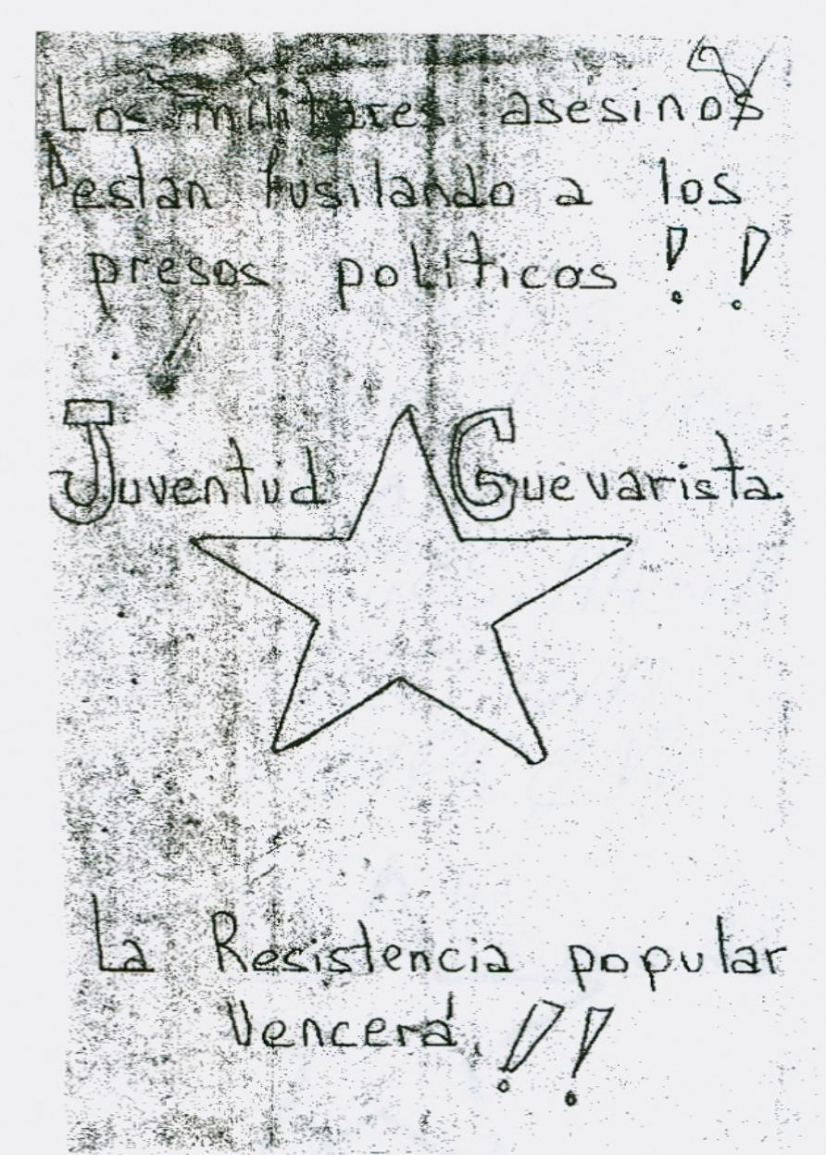 Los militares asesinos
estan fusilando a los
presos políticos !!
Juventud Guevarista
La Resistencia popular
Vencerá !!